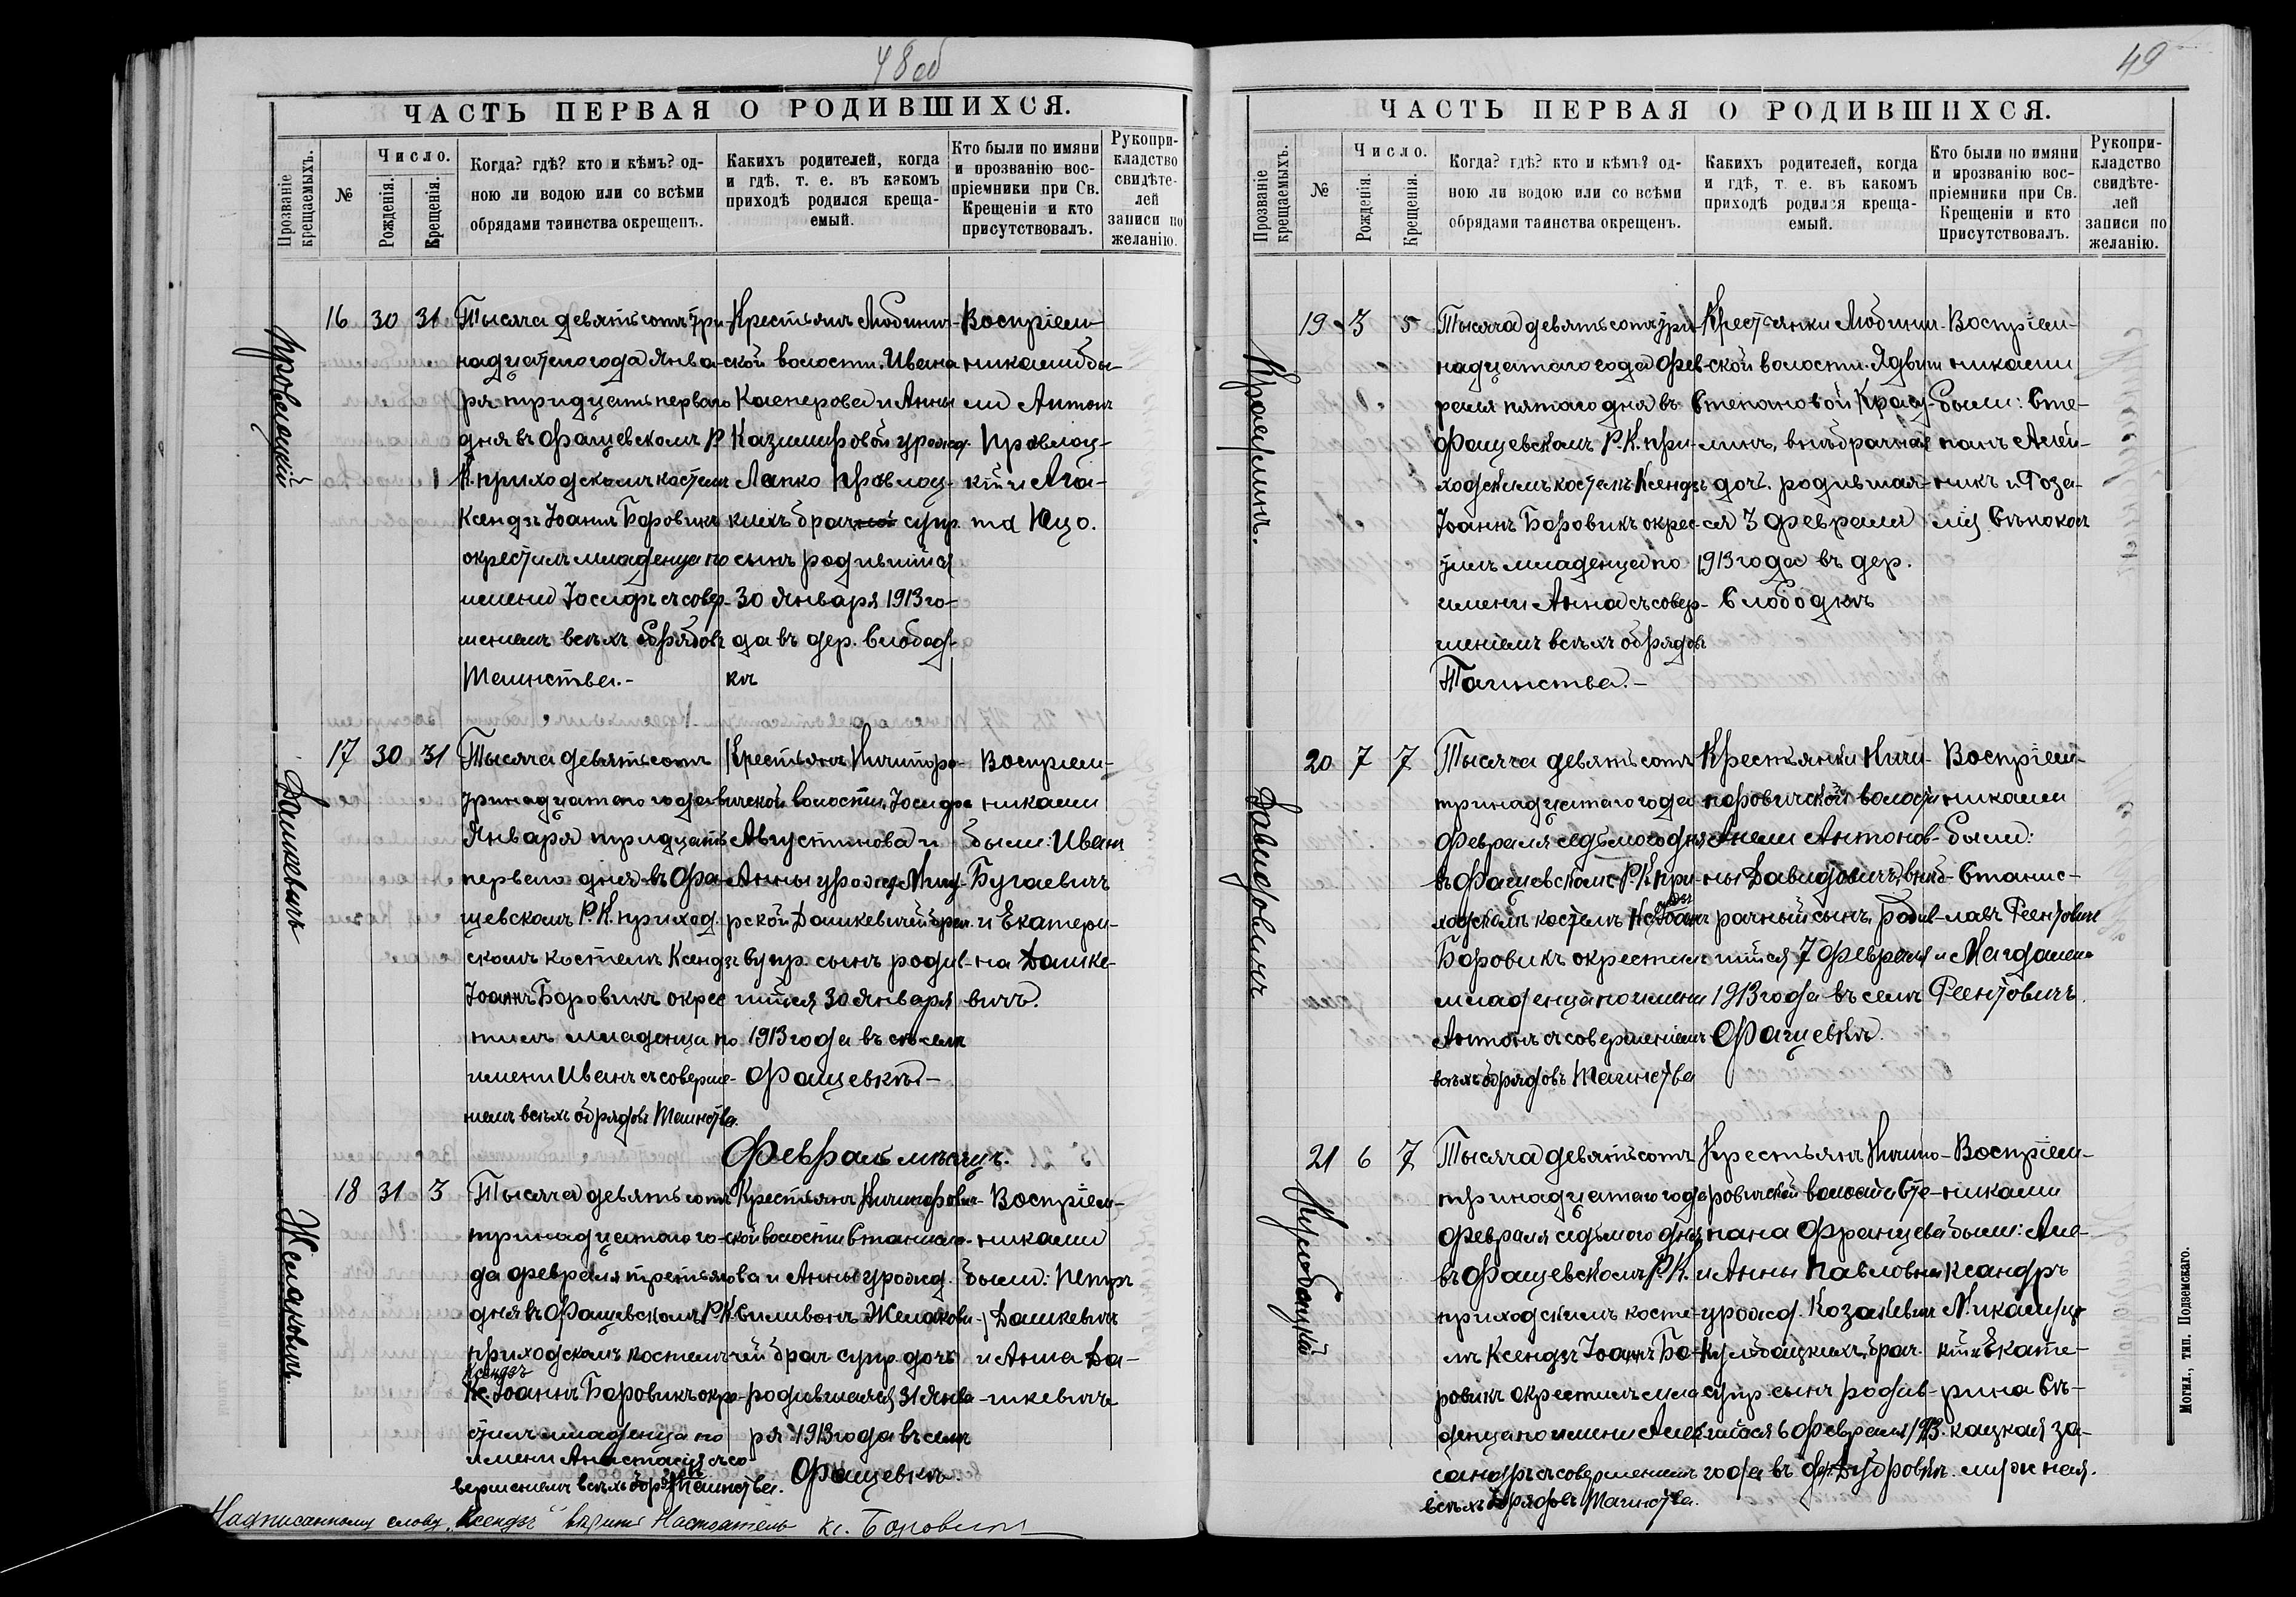 48 об
ЧАСТЬ ПЕРВАЯ О РОДИВШИХСЯ.
Прозваніе крещаемыхъ.
№
Число.
Рожденія.
Крещенія.
Когда? гдѣ? кто и кѣмъ? од-
ною ли водою или со всѣми
обрядами таинства окрещенъ.
Какихъ родителей, когда
и гдѣ, т. е. въ какомъ
приходѣ родился креща-
емый.
Кто были по имяни
и прозванію вос-
пріемники при Св.
Крещеніи и кто
присутствовалъ.
Рукопри-
кладство
свидѣте-
лей
записи по
желанію.
16 30 31
Тысяча девятьсотъ три-
надцатаго года Янва-
ря тридцать перваго
дня въ Фащевскомъ Р.
К. приходскомъ костелѣ
Ксендзъ Іоаннъ Боровикъ
окрестилъ младенца по
имени Іосифъ съ совер-
шеніемъ всѣхъ обрядовъ
Таинства.-
Крестьянъ Любинич-
ской волости Ивана
Касперова и Анны
Казимировой урожд.
Лапко
кихъ брач супр.
сынъ родившійся
30 Января 1913 го-
да въ дер. Слобод-
кѣ
Воспріем-
никами бы-
ли Антонъ
кій и Ага-
та Юцо.
Дашкевичъ
17 30 31
Тысяча девятьсотъ
тринадцатаго года
Января тридцать
перваго дня въ Фа-
щевскомъ Р.К. приход.
скомъ костелѣ Ксендзъ
Іоаннъ Боровикъ окрес
тилъ младенца по
имени Иванъ съ соверше-
ніемъ всѣхъ обрядовъ Таинства.
Крестьянъ Ничипоро-
вичской волости Іосифа
Августинова и
Анны урожд.
рской Дашкевичей брач.
супр. сынъ родив-
шійся 30 Января
1913 года въ селѣ
Фащевкѣ-
Воспріем-
никами
были: Иванъ
Бугаевичъ
и Екатери-
на Дашке-
вичъ.
Февраль мѣсяцъ.
Желяковичъ.
18 31 3
Тысяча девятьсотъ
тринадцатаго го-
да февраля третьяго
дня въ Фащевскомъ Р.К
приходскомъ костелѣ
Ксендзъ
Кс. Іоаннъ Боровикъ окре-
стилъ младенца по
имени Анастасія съ со-
вершеніемъ всѣхъ обрядовъ Таинства.
Крестьянъ Ничипорович-
ской волости Станисла-
ва и Анны урожд.
Желякови-
чей брач супр. дочь
родившаяся 31 Янва-
ря 1913 года въ селѣ
Фащевкѣ.
Воспріем-
никами
были: Петръ
Дашкевичъ
и Анна Да-
шкевичъ
Надписанному слову „Ксендзъ" вѣрить Настоятель кс. Боровикъ
49
ЧАСТЬ ПЕРВАЯ О РОДИВШИХСЯ.
Прозваніе крещаемыхъ.
№
Число.
Рожденія.
Крещенія.
Когда? гдѣ? кто и кѣмъ? од-
ною ли водою или со всѣми
обрядами таинства окрещенъ.
Какихъ родителей, когда
и гдѣ, т. е. въ какомъ
приходѣ родился креща-
емый.
Кто были по имяни
и прозванію вос-
пріемники при Св.
Крещеніи и кто
присутствовалъ.
Рукопри-
кладство
свидѣте-
лей
записи по
желанію.
19 3 5
Тысяча девятьсотъ три-
надцатаго года Фев-
раля пятаго дня въ
Фащевскомъ Р.К. при-
ходскомъ костелѣ Ксендзъ
Іоаннъ Боровикъ окрес-
тилъ младенца по
имени Анна съ совер-
шеніемъ всѣхъ обрядовъ
Таинства.-
Крестьянки Любинич-
ской волости Ядвиги
Степановой
внѣбрачная
доч. родившая-
ся 3 Февраля
1913 года въ дер.
Слободкѣ
Воспріем-
никами
были: Сте-
панъ Алей-
никъ и Роза-
лія
Давидовичъ
20 7 7
Тысяча девятьсотъ
тринадцатаго года
февраля седьмого дня
въ Фащевскомъ Р.К. при-
ходскомъ костелѣ Ксендзъ Іоаннъ
Боровикъ окрестилъ
младенца по имени
Антонъ съ совершеніемъ
всѣхъ обрядовъ Таинства
Крестьянки Ничи-
поровичской волости
Анели Антонов-
ны Давидовичъ, внѣб-
рачный сынъ, родив-
шійся 7 февраля
1913 года въ селѣ
Фащевкѣ.
Воспріем-
никами
были:
Станис-
лавъ Реентовичъ
и Магдалена
Реентовичъ.
21 6 7
Тысяча девятьсотъ
тринадцатаго года
февраля седьмого дня
въ Фащевскомъ Р.К.
приходскомъ косте-
лѣ Ксендзъ Іоаннъ Бо-
ровикъ окрестилъ мла
денца по имени Алек
сандръ съ совершеніемъ
всѣхъ обрядовъ Таинства.
Крестьянъ Ничипо-
ровичской волости Сте-
пана Францева
и Анны Павловны
урожд. Козакевичъ
брач.
супр. сынъ родив-
шійся 6 Февраля 1913.
года въ дер. Дубровкѣ.
Воспріем-
никами
были: Але-
ксандръ
кій и Екате-
рина Съ-
кацкая за-
мужняя.
Могил., тип. Подземскаго.